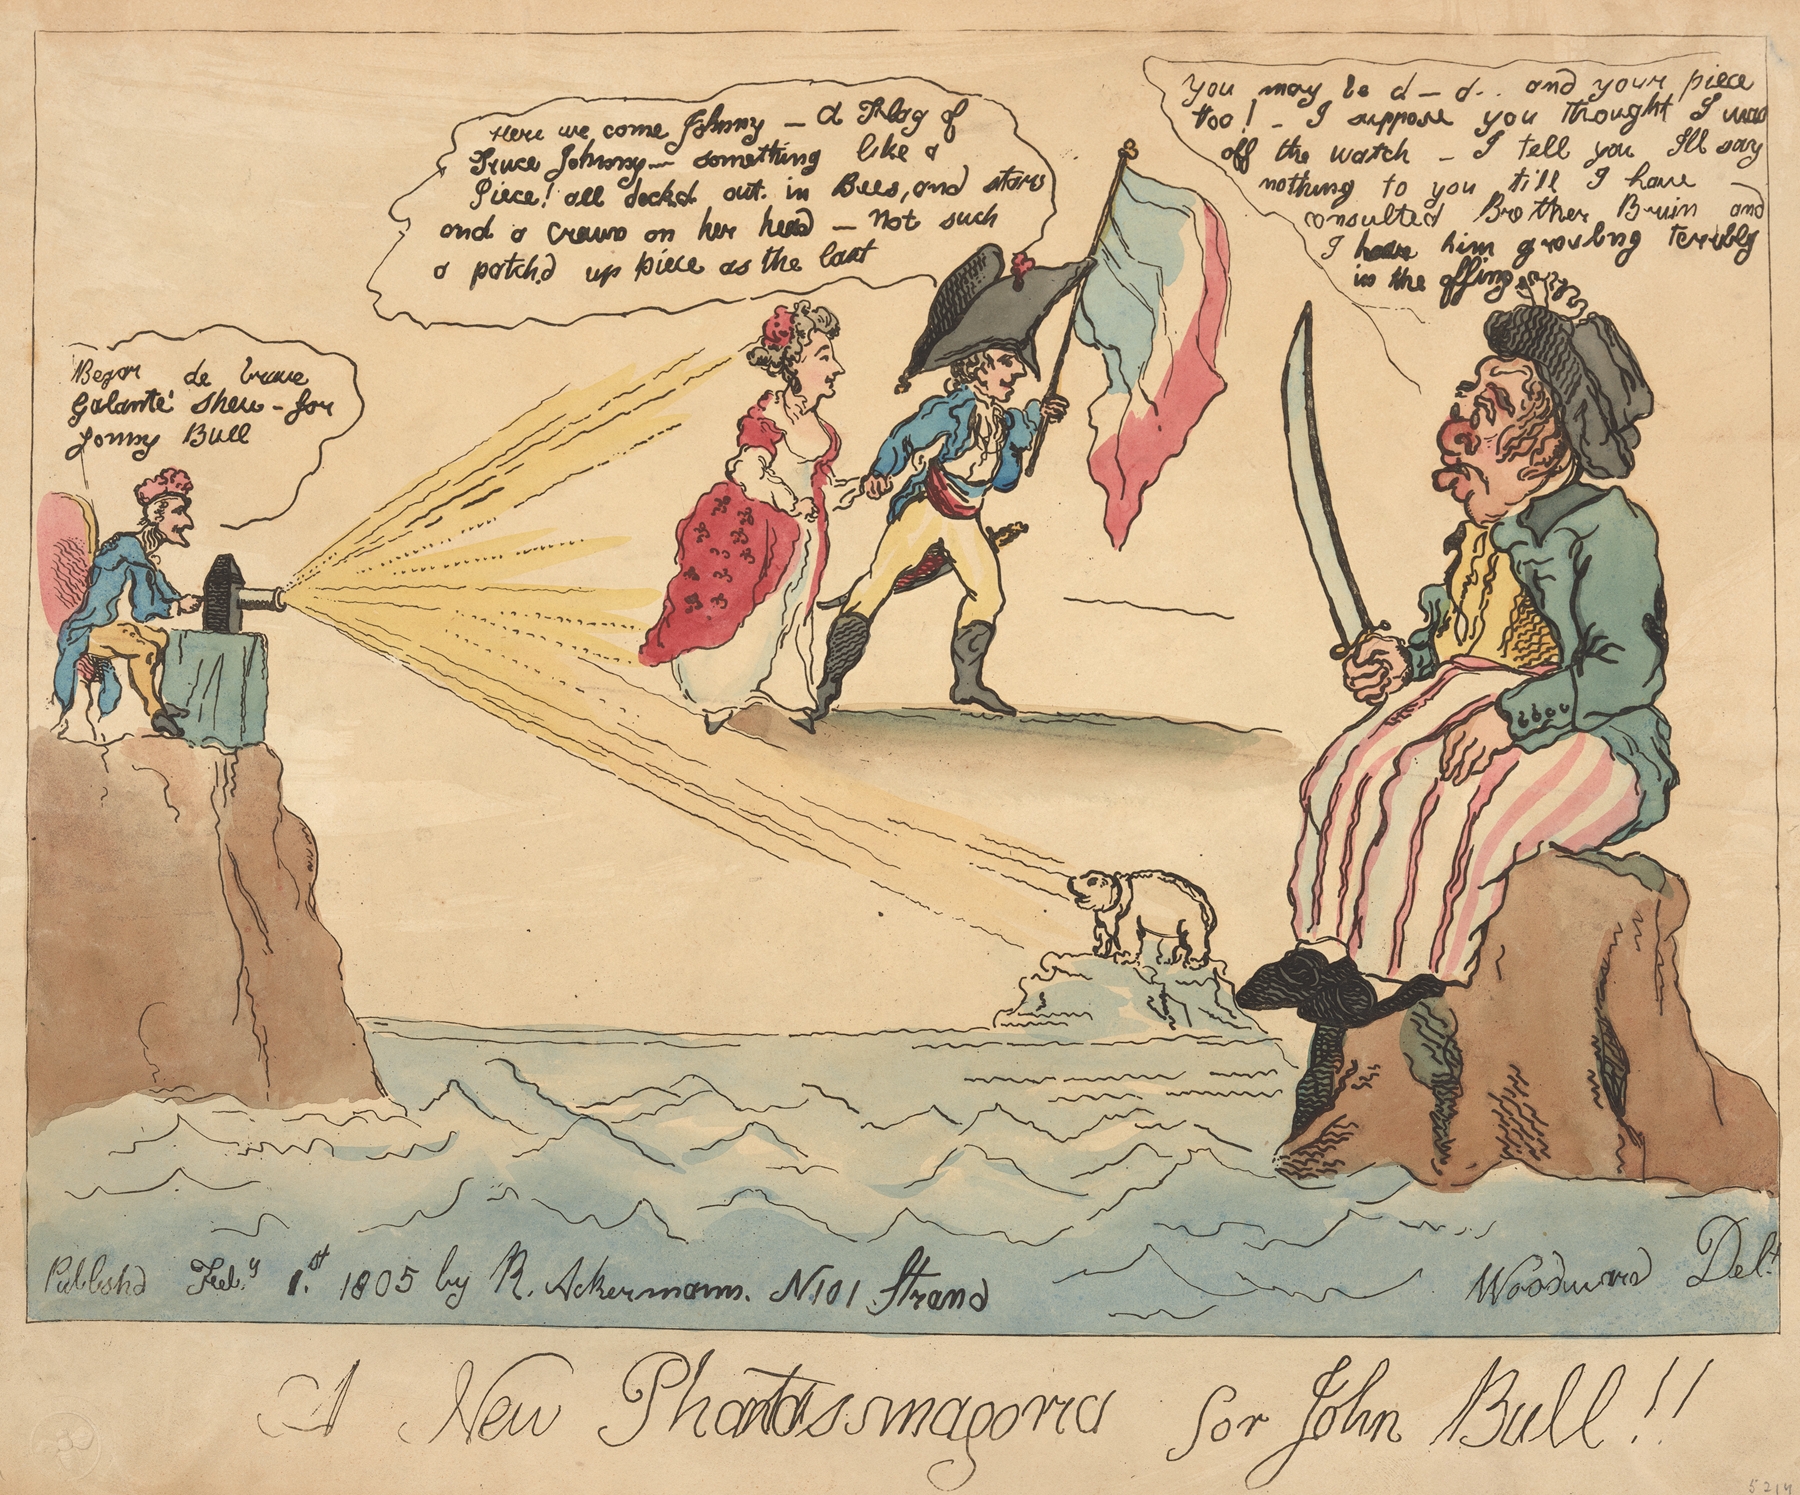 Begar de brave
Galanté shew - for
Jonny Bull
Here we come Johnny — a Flag of
Truce Johnny — something like a
Piece! all deckd out in Bees, and stars
and a crawn on her head — Not such
a patch'd up piece as the last
You may be d — d.. and your piece
too! - I suppose you thought I was
off the watch - I tell you Ill say
nothing to you till I have
consulted Brother Bruin and
I hear him growling terribly
in the offing
Publishd Feb.y 1.st 1805 by R. Ackermann. N101 Strand
Woodward Del.t
A New Phantassmagoria for John Bull!!